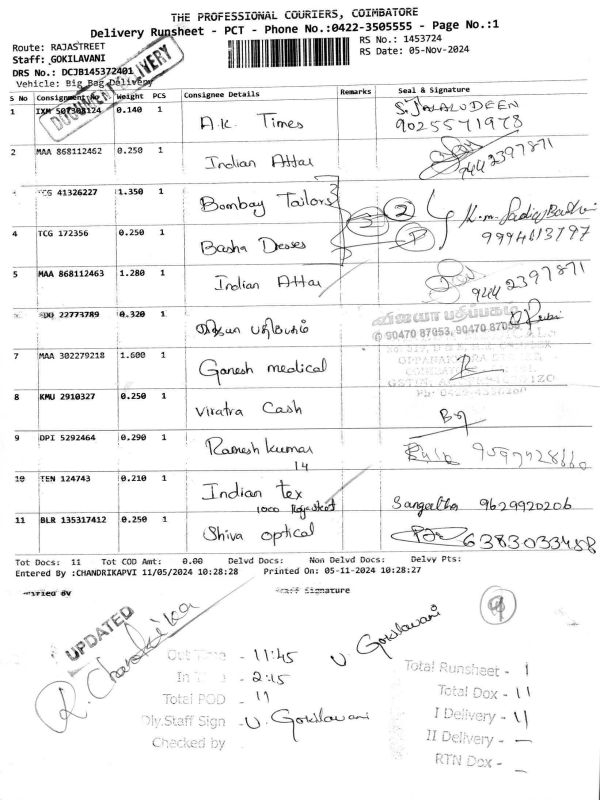 THE PROFESSIONAL COURIERS, COIMBATORE
Delivery Runsheet - PCT - Phone No.:0422-3505555 - Page No.:1
Route: RAJASTREET
RS No.: 1453724
Staff: GOKILAVANI
RS Date: 05-Nov-2024
DRS No.: DCJB145372401
Vehicle: Big Bag Delivery
DOCUMENT DELIVERY
S No Consignment No Weight PCS Consignee Details Remarks Seal & Signature
1 IXM 507308124 0.140 1 A.K. Times S. JALALUDEEN
9025571978
2 MAA 868112462 0.250 1 Indian Attar 944 2397871
TCG 41326227 1.350 1 Bombay Tailors
3 2
4 TCG 172356 0.250 1 Basha Dresses 9994613797
5 MAA 868112463 1.280 1 Indian Attar 944 2397871
22773789 0.320 1 விஜயா பதிப்பகம்
விஜயா பதிப்பகம்
90470 87053, 90470 87059
7 MAA 302279218 1.600 1 Ganesh medical
8 KMU 2910327 0.250 1 Viratra Cash
9 DPI 5292464 0.290 1 Ramesh Kumar
14
10 TEN 124743 0.210 1 Indian Tex Sangeetha 9629920206
11 BLR 135317412 0.250 1 Shiva optical 6383033458
Tot Docs: 11 Tot COD Amt: 0.00 Delvd Docs: Non Delvd Docs: Delvy Pts:
Entered By :CHANDRIKAPVI 11/05/2024 10:28:28 Printed On: 05-11-2024 10:28:27
Verified By Staff Signature
UPDATED
R. Chandrika
9
U. Gokilavani
Out Time - 11:45
In Time - 2:15
Total POD - 11
Dly.Staff Sign - U. Gokilavani
Checked by
Total Runsheet - 1
Total Dox - 11
I Delivery - 11
II Delivery -
RTN Dox -